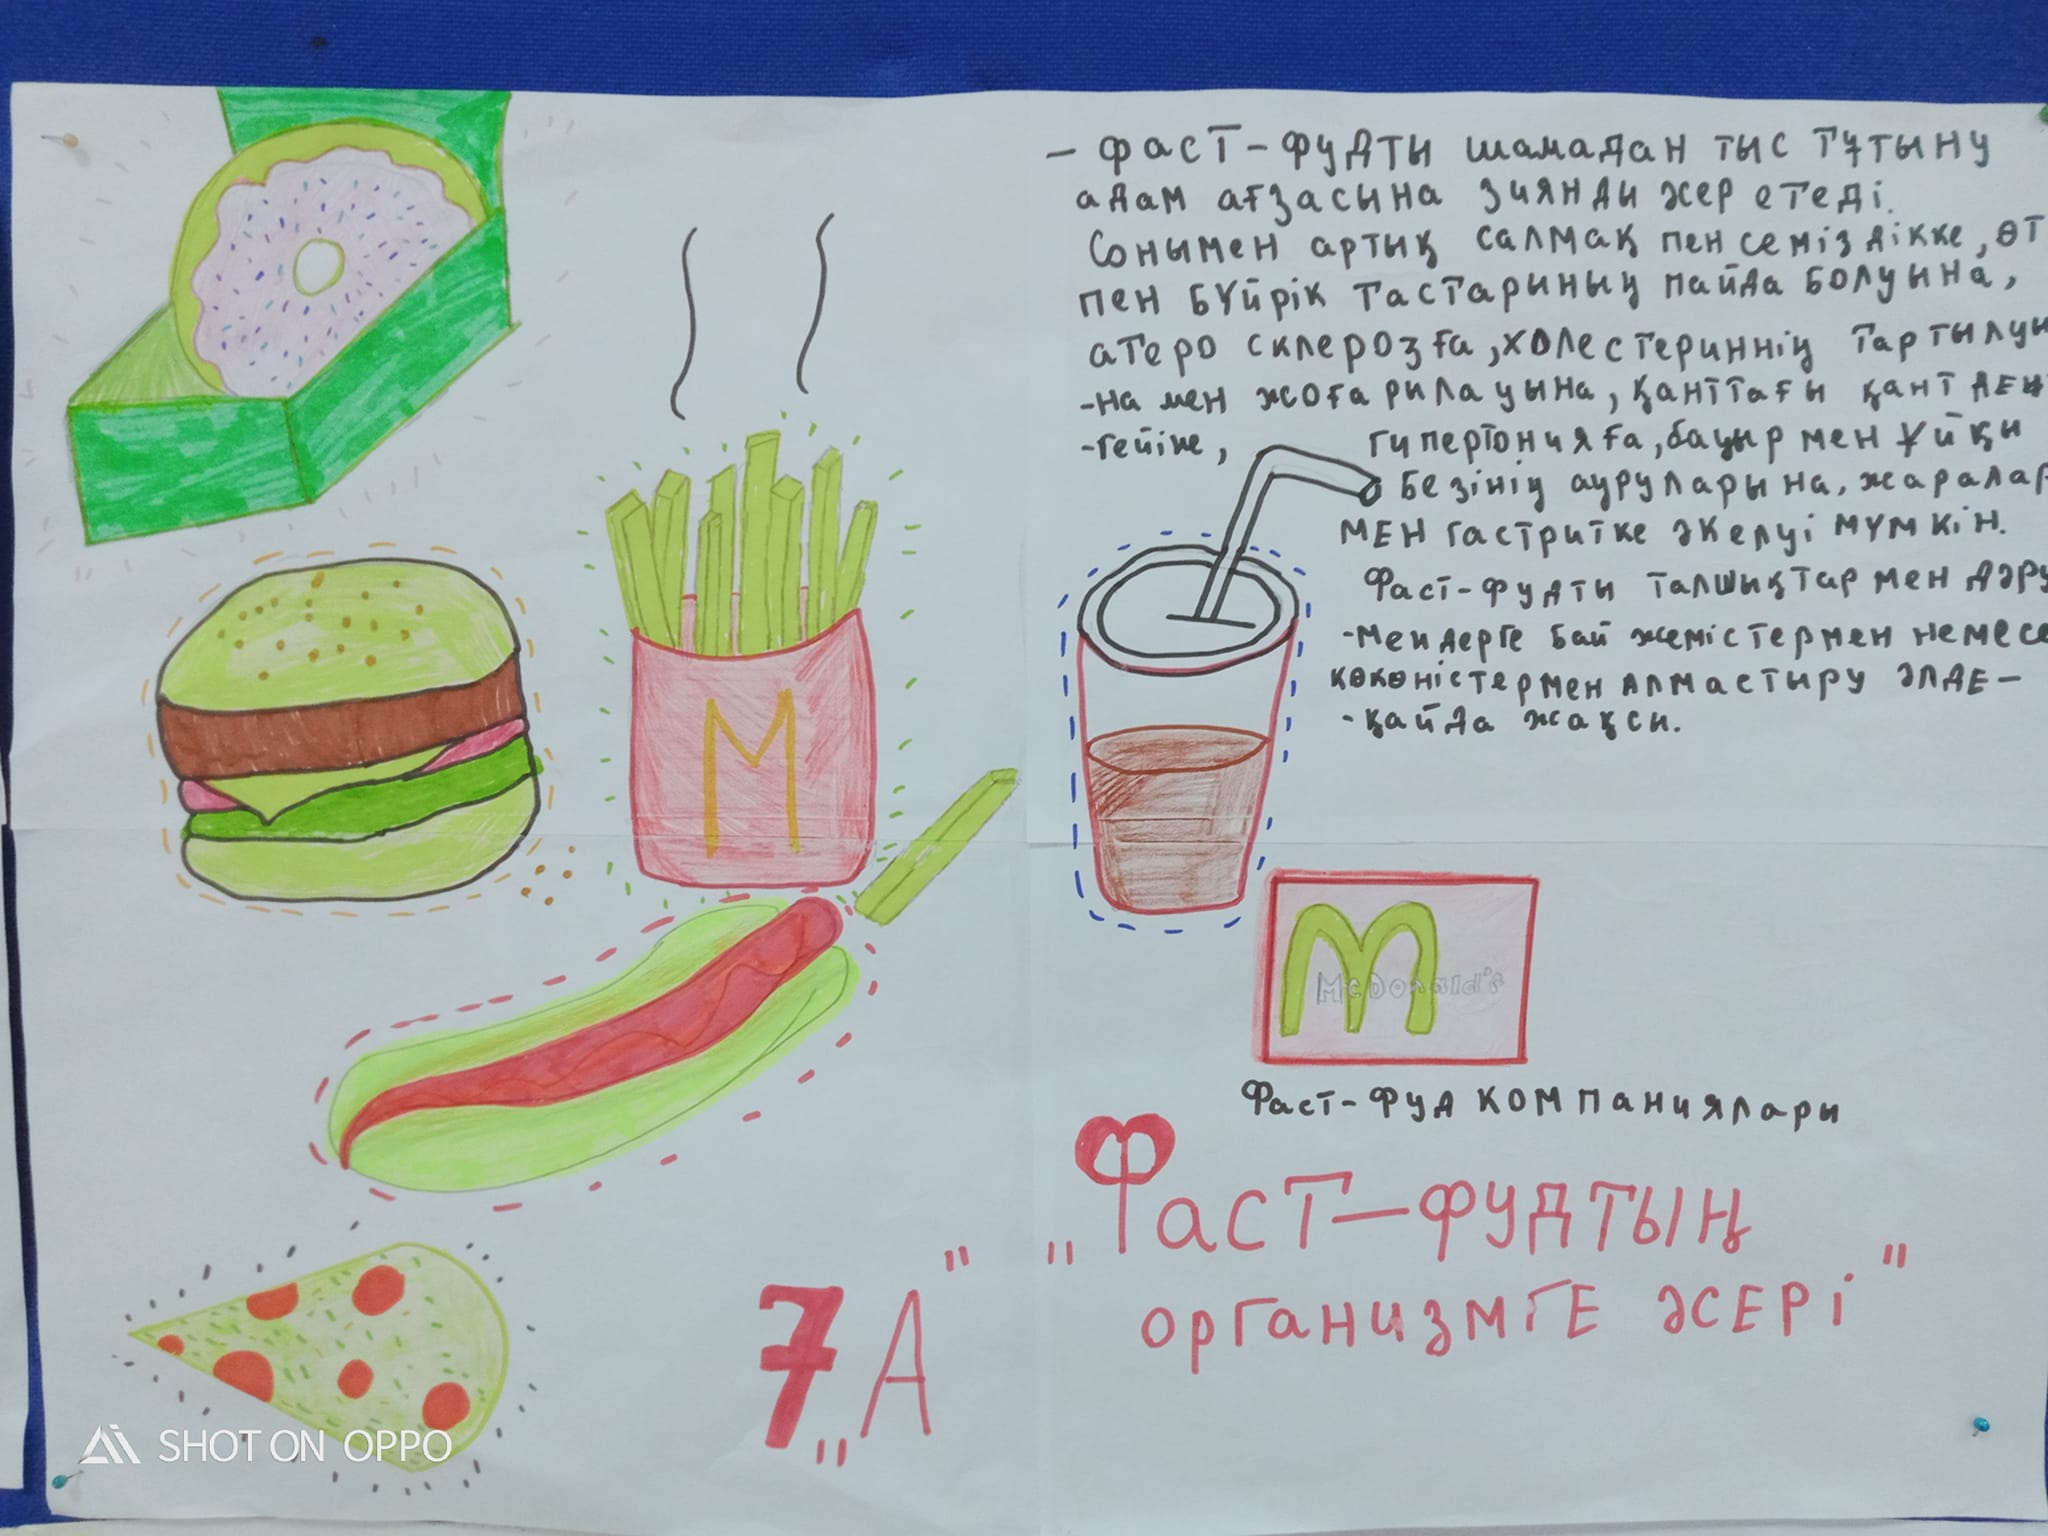 - Фаст-фудты шамадан тыс тұтыну
адам ағзасына зиянды әсер етеді.
Сонымен артық салмақ пен семіздікке, өт
пен бүйрік тастарының пайда болуына,
атеро склерозға, холестериннің тартылуы
-на мен жоғарилауына, қанттағы қант дең
-гейіне, гипертонияға, бауыр мен ұйқы
безінің ауруларына, жаралар
мен гастритке әкелуі мүмкін.
Фаст-фудты талшықтар мен дәру
-мендерге бай жемістермен немесе
көкөністермен алмастыру әлде-
-қайда жақсы.
M
McDonald's
Фаст-фуд компаниялары
„Фаст-фудтың
организмге әсері"
7„А"
SHOT ON OPPO